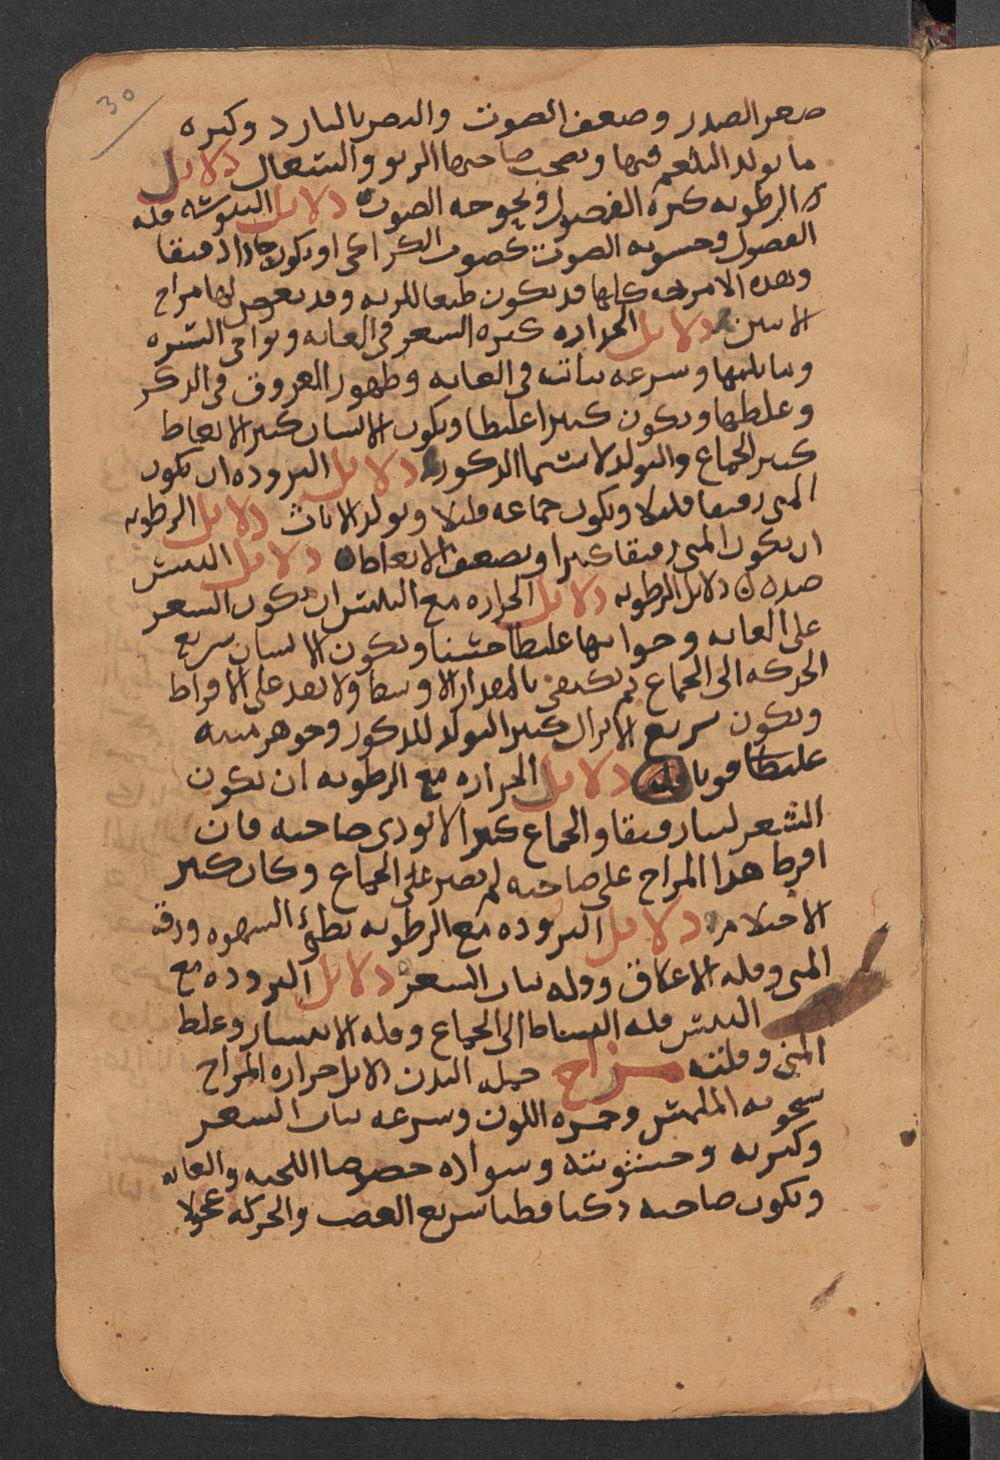 30
صغر الصدر وضعف الصوت والتضرر بالبارد وكثره
ما يولد البلغم فيها ويصحب صاحبها الربو والسعال دلايل
الرطوبه كثره الفضول وبحوحه الصوت دلايل اليبوسه قله
الفضول وخشونه الصوت كصوت الكراكي او يكون حادا دقيقا
وهذه الامزجه كلها قد يكون طبعا للريه وقد يعرض لها مزاج
الانثيين دلايل الحراره كثره الشعر في العانه ونواحي السره
وما يليها وسرعه نباته في العانه وظهور العروق في الذكر
وغلظها ويكون كبيرا غليظا ويكون الانسان كثير الانعاظ
كثير الجماع والتولد لا سيما الذكور دلايل البروده ان يكون
المني رقيقا قليلا ويكون جماعه قليلا ويولد الاناث دلايل الرطوبه
ان يكون المني رقيقا كثيرا ويضعف الانعاظ دلايل اليبس
ضد دلايل الرطوبه دلايل الحراره مع اليبس ان يكون الشعر
على العانه وحواليها غليظا خشنا ويكون الانسان سريع
الحركه الى الجماع ثم يكتفي بالمقدار الاوسط ولا يقدر على الافراط
ويكون سريع الانزال كثير التولد للذكور وجوهر منيه
غليظا قويا دلايل الحراره مع الرطوبه ان يكون
الشعر لينا رقيقا والجماع كثيرا لا يوذي صاحبه فان
افرط هذا المزاج على صاحبه لم يصبر على الجماع وكان كثير
الاحتلام دلايل البروده مع الرطوبه بطئ الشهوه ورقه
المني وقله الاعلاق وقله نبات الشعر دلايل البروده مع
اليبس قله النشاط الى الجماع وقله الانتشار وغلظ
المني وقلته مزاج جمله البدن دلايل حراره المزاج
سخونه الملمس وحمره اللون وسرعه نبات الشعر
وكثرته وخشونته وسواده خصوصا اللحيه والعانه
ويكون صاحبه ذكيا فطنا سريع الغضب والحركه عجولا